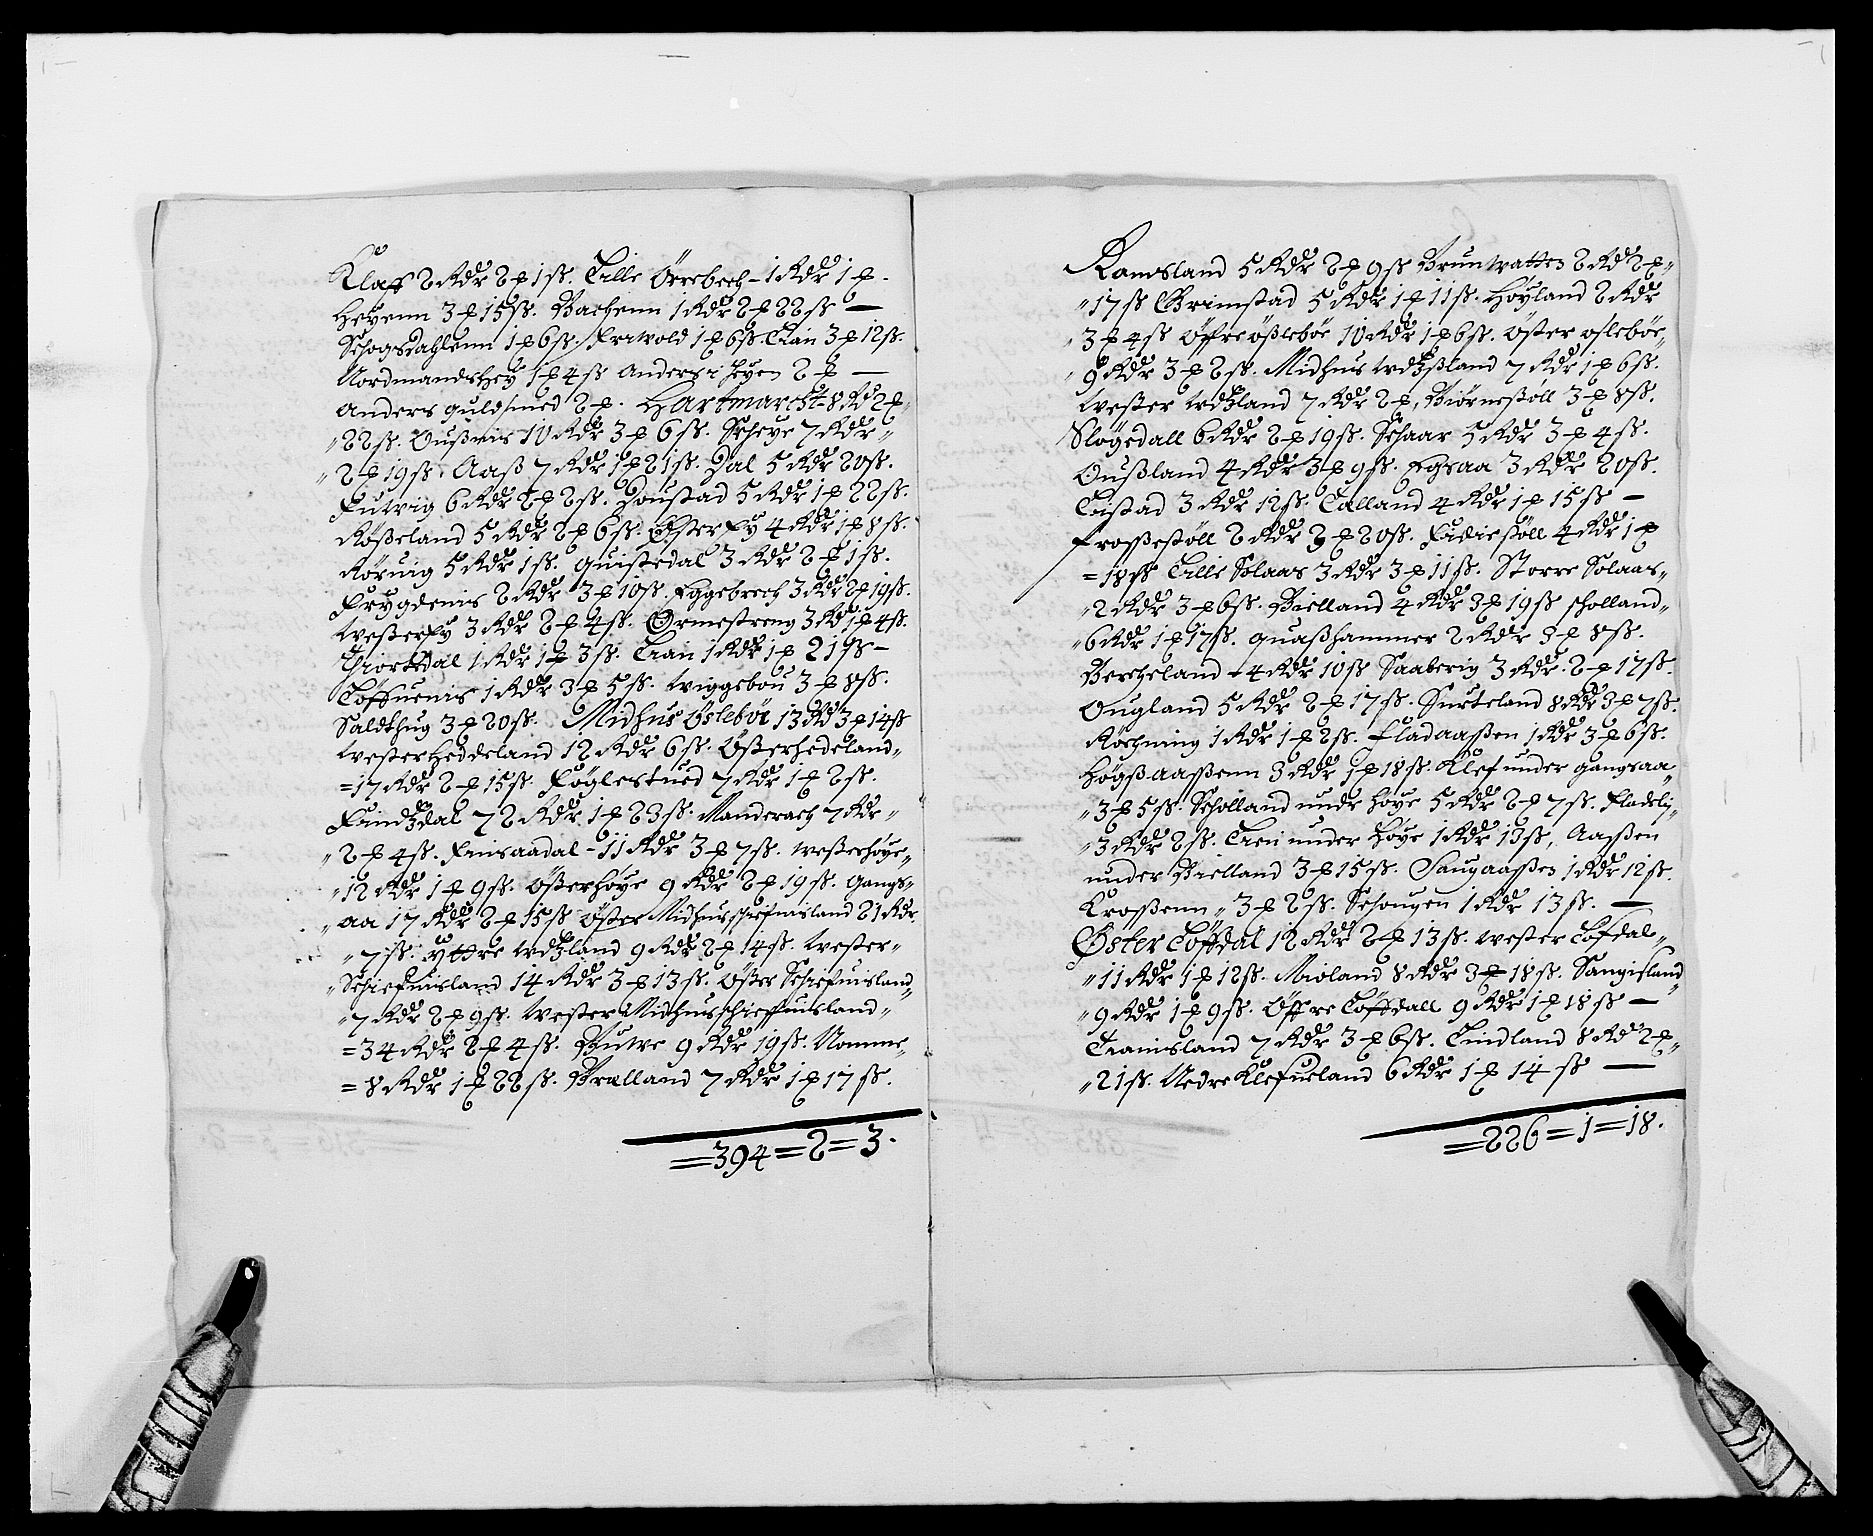 Klaff 2 Rdr 2 ₰ 1 ß. Lille Örrebech - 1 Rdr 1 ₰ -
Heyenn 3 ₰ 15 ß. Bachenn 1 Rdr 2 ₰ 22 ß —
Schogsdahlenn 1 ₰ 6 ß. Friwold 1 ₰ 6 ß. Lian 3 ₰ 12 ß.
Nordmandshey 1 ₰ 4 ß Anders i heyen 2 ₰ —
Anders guldsmed 2 ₰. Hartmarcht 8 Rd 2 ₰
"22 ß. Oußnis 10 Rdr 3 ₰ 6 ß. Scheye 7 Rdr "
"2 ₰ 19 ß. Aaß 7 Rdr 1 ₰ 21 ß. Dal 5 Rdr 20 ß.
Fulvig 6 Rdr 2 ₰ 2 ß. Doustad 5 Rdr 1 ₰ 22 ß.
Rößeland 5 Rdr 2 ₰ 6 ß. Østerey 4 Rdr 1 ₰ 8 ß.
Rörvig 5 Rdr 1 ß. Quistedal 3 Rdr 2 ₰ 1 ß.
Frygdenis 2 Rdr 3 ₰ 10 ß. Eggebrech 3 Rdr 2 ₰ 19 ß.
Westerey 3 Rdr 2 ₰ 4 ß. Ormestreng 3 Rd 1 ₰ 4 ß.
Hiortdal 1 Rdr 1 ₰ 3 ß. Lian 1 Rdr 1 ₰ 21 ß -
Töffuenis 1 Rdr 3 ₰ 5 ß. Wiggebou 3 ₰ 8 ß.
Saldthug 3 ₰ 20 ß. Midhus Ösleböe 13 Rd 3 ₰ 14 ß
Westerheddeland 12 Rdr 6 ß. Österhedeland "
= 17 Rdr 2 ₰ 15 ß. Föglestued 7 Rdr 1 ₰ 2 ß.
Findzdal 72 Rdr 1 ₰ 23 ß. Manderach 7 Rdr "
"2 ₰ 4 ß. Finsaadal - 11 Rdr 3 ₰ 7 ß. Westerhöye "
"12 Rdr 1 ₰ 9 ß. Österhöye 9 Rdr 2 ₰ 19 ß. Gangs "
"aa 17 Rdr 2 ₰ 15 ß Öster Midhus schiefnisland 21 Rdr.
"7 ß. yttre Udzland 9 Rdr 2 ₰ 14 ß. Wester "
"Schiefnisland 14 Rdr 3 ₰ 13 ß. Öster Schiefnisland "
"7 Rdr 2 ₰ 9 ß. Wester Midhus schieffnisland "
= 34 Rdr 2 ₰ 4 ß. Buwe 9 Rdr 19 ß. Nomme "
= 8 Rdr 1 ₰ 22 ß. Brælland 7 Rdr 1 ₰ 17 ß.
= 394 = 2 = 3.
Ramsland 5 Rdr 2 ₰ 9 ß Brunvatten 2 Rd 2 ₰ "
"17 ß Grimstad 5 Rdr 1 ₰ 11 ß. Höyland 2 Rdr
"3 ₰ 4 ß Öfre ößleböe 10 Rdr 1 ₰ 6 ß. Öster osleböe "
"9 Rdr 3 ₰ 2 ß. Midhus Udzßland 7 Rdr 1 ₰ 6 ß.
Wester Udzland 7 Rdr 2 ₰, Biörnestöll 3 ₰ 8 ß.
Slögedall 6 Rdr 2 ₰ 19 ß. Schaar 5 Rdr 3 ₰ 4 ß.
Oußland 4 Rdr 3 ₰ 9 ß. Egsaa 3 Rdr 20 ß.
Loistad 3 Rdr 12 ß. Lalland 4 Rdr 1 ₰ 15 ß -
Froßestöll 2 Rdr 3 ₰ 20 ß. Fidiestöll 4 Rdr 1 ₰
= 18 ß Lille Solaas 3 Rdr 3 ₰ 11 ß. Större Solaas "
"2 Rdr 3 ₰ 6 ß. Bielland 4 Rdr 3 ₰ 19 ß scholland "
"6 Rdr 1 ₰ 17 ß. Quaßhammer 2 Rdr 3 ₰ 8 ß.
Bercheland - 4 Rdr 10 ß Saaberig 3 Rdr. 2 ₰ 17 ß.
Ougland 5 Rdr 2 ₰ 17 ß. Surteland 8 Rdr 3 ₰ 7 ß.
Röchning 1 Rdr 1 ₰ 2 ß. Fladaaßen 1 Rdr 3 ₰ 6 ß.
Högßaaßenn 3 Rdr 1 ₰ 18 ß. Klef under Gangsaa "
"3 ₰ 5 ß. Scholland undr Höye 5 Rdr 2 ₰ 7 ß. Fladelij "
"3 Rdr 2 ß. Lien under Höye 1 Rdr 13 ß, Aaßen
under Bielland 3 ₰ 15 ß. Saugaaßen 1 Rdr 12 ß.
Kroßenn " 3 ₰ 2 ß. Schougen 1 Rdr 13 ß. —
Öster Löffdal 12 Rdr 2 ₰ 13 ß. Wester Löfdal "
"11 Rdr 1 ₰ 12 ß. Mioland 8 Rdr 3 ₰ 18 ß. Sangisland "
"9 Rdr 1 ₰ 9 ß. Öffre Löffdall 9 Rdr 1 ₰ 18 ß —
Trainsland 7 Rdr 3 ₰ 6 ß. Lindland 8 Rd 2 ₰ "
"21 ß. Nedre Klefueland 6 Rdr 1 ₰ 14 ß —
= 226 = 1 = 18.